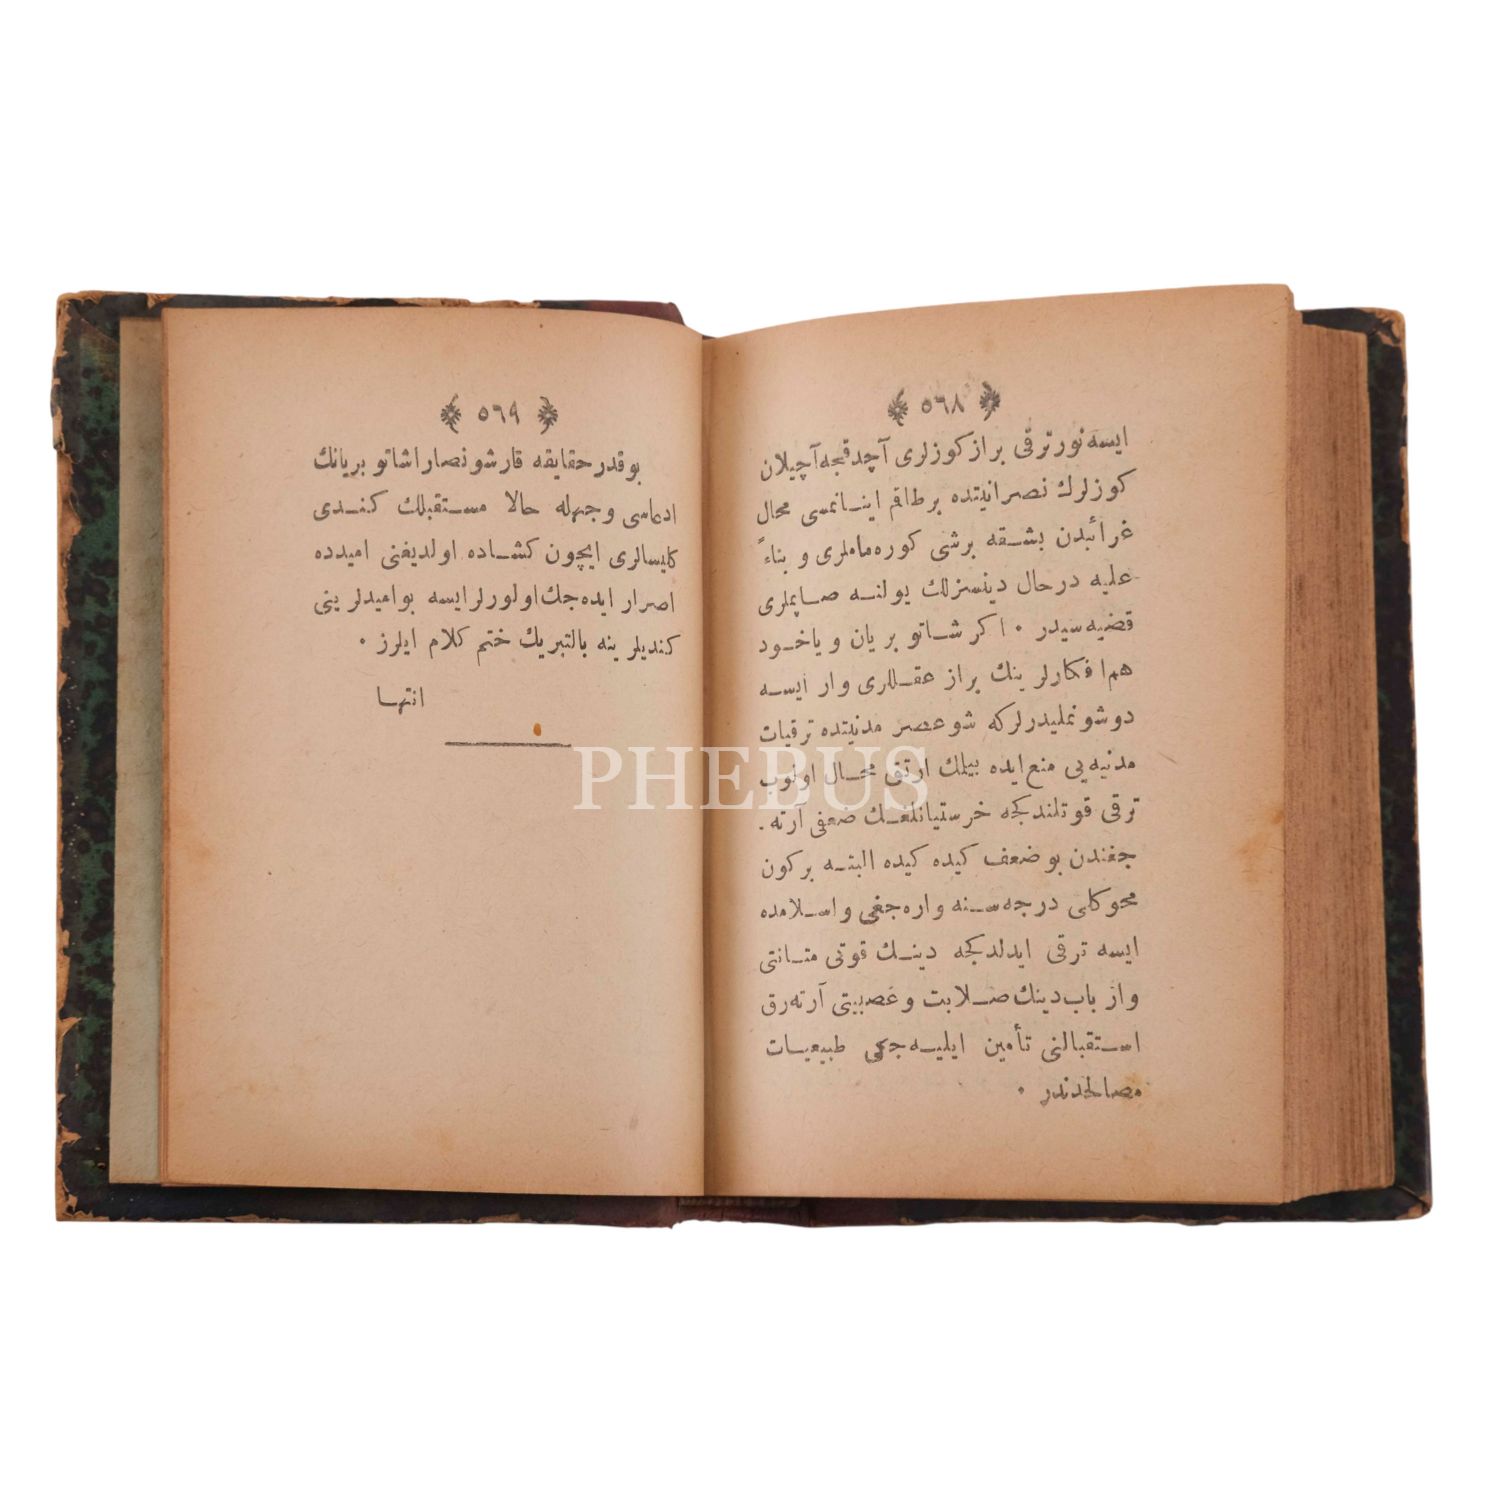 ﴿ ٥٦٨ ﴾
ايسه نور ترقى براز كوزلرى آچدقجه آچيلان
كوزلرك نصرانيتده بر طاقم اينانمسى محال
غرائبدن بشقه برشى كوره‌ماملرى و بناءً
عليه درحال دينسزلك يولنه صاپملرى
قضيه‌سيدر . اكر شاتو بريان و ياخود
هم افكارلرينك براز عقللرى وار ايسه
دوشونمليدرلركه شو عصر مدنيتده ترقيات
مدنيه‌يى منع ايده بيلمك ارتق محال اولوب
ترقى قوتلندكجه خرستيانلغك ضعفى آرته .
جغندن بو ضعف كيده كيده البته بركون
محو كلى درجه‌سنه واره‌جغى و اسلامده
ايسه ترقى ايدلدكجه دينك قوتى متانتى
و ارباب دينك صلابت و عصبيتى آرته‌رق
استقبالنى تأمين ايليه‌جكى طبيعيات
مصالحدندر .
﴿ ٥٦٩ ﴾
بو قدر حقايقه قارشو نصارا شاتو بريانك
ادعاسى وجهله حالا مستقبلك كندى
كليسالرى ايچون كشاده اولديغنى اميدده
اصرار ايده‌جك اولورلر ايسه بو اميدلرينى
كنديلرينه بالتبريك ختم كلام ايلرز .
انتها
PHEBUS